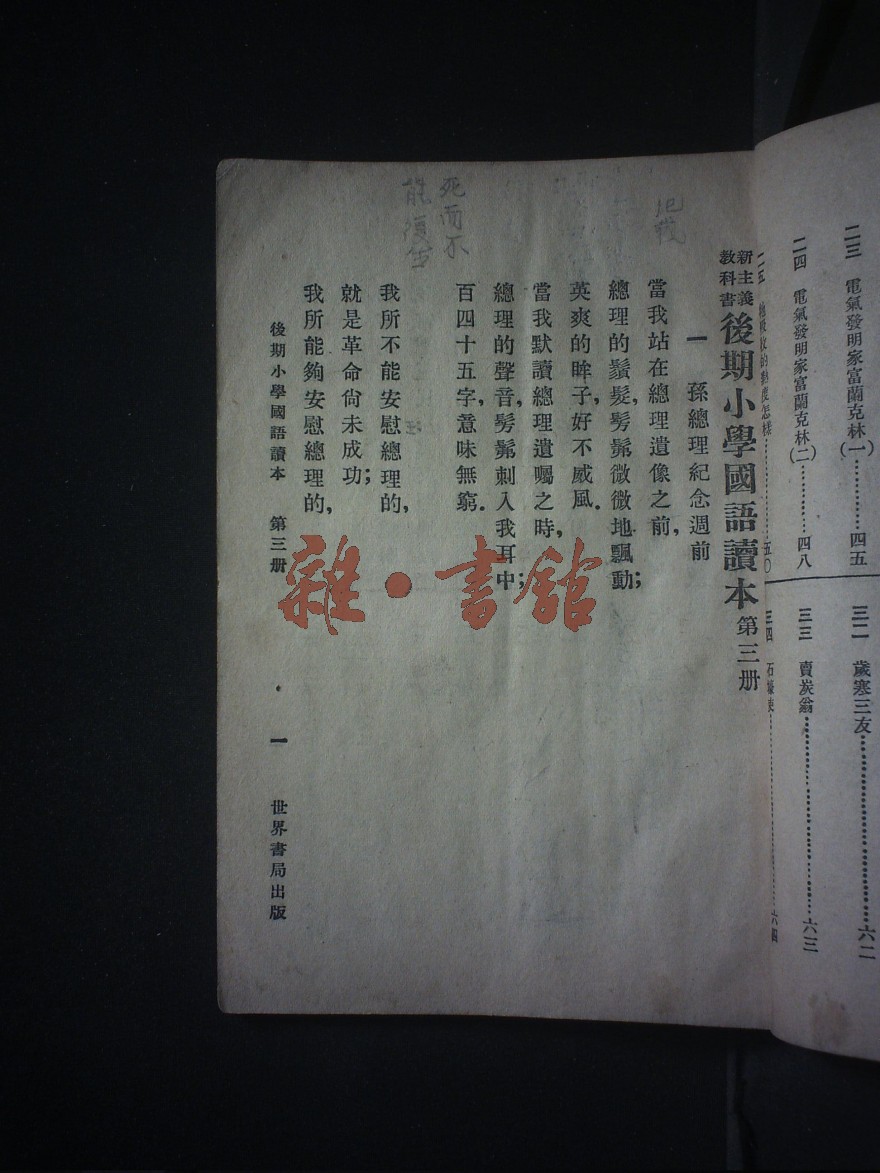 二三 電氣發明家富蘭克林(一)…………四五
二四 電氣發明家富蘭克林(二)…………四八
五〇
三二 歲寒三友…………六二
三三 賣炭翁…………六三
三四 石壕吏…………六四
新主義教科書 後期小學國語讀本 第三册
一 孫總理紀念週前
當我站在總理遺像之前,
總理的鬚髮,髣髴微微地飄動;
英爽的眸子,好不威風.
當我默讀總理遺囑之時,
總理的聲音,髣髴刺入我耳中;
百四十五字,意味無窮.
我所不能安慰總理的,
就是革命尙未成功;
我所能夠安慰總理的,
後期小學國語讀本 第三册 一 世界書局出版
死而不
能復生
雜·書館